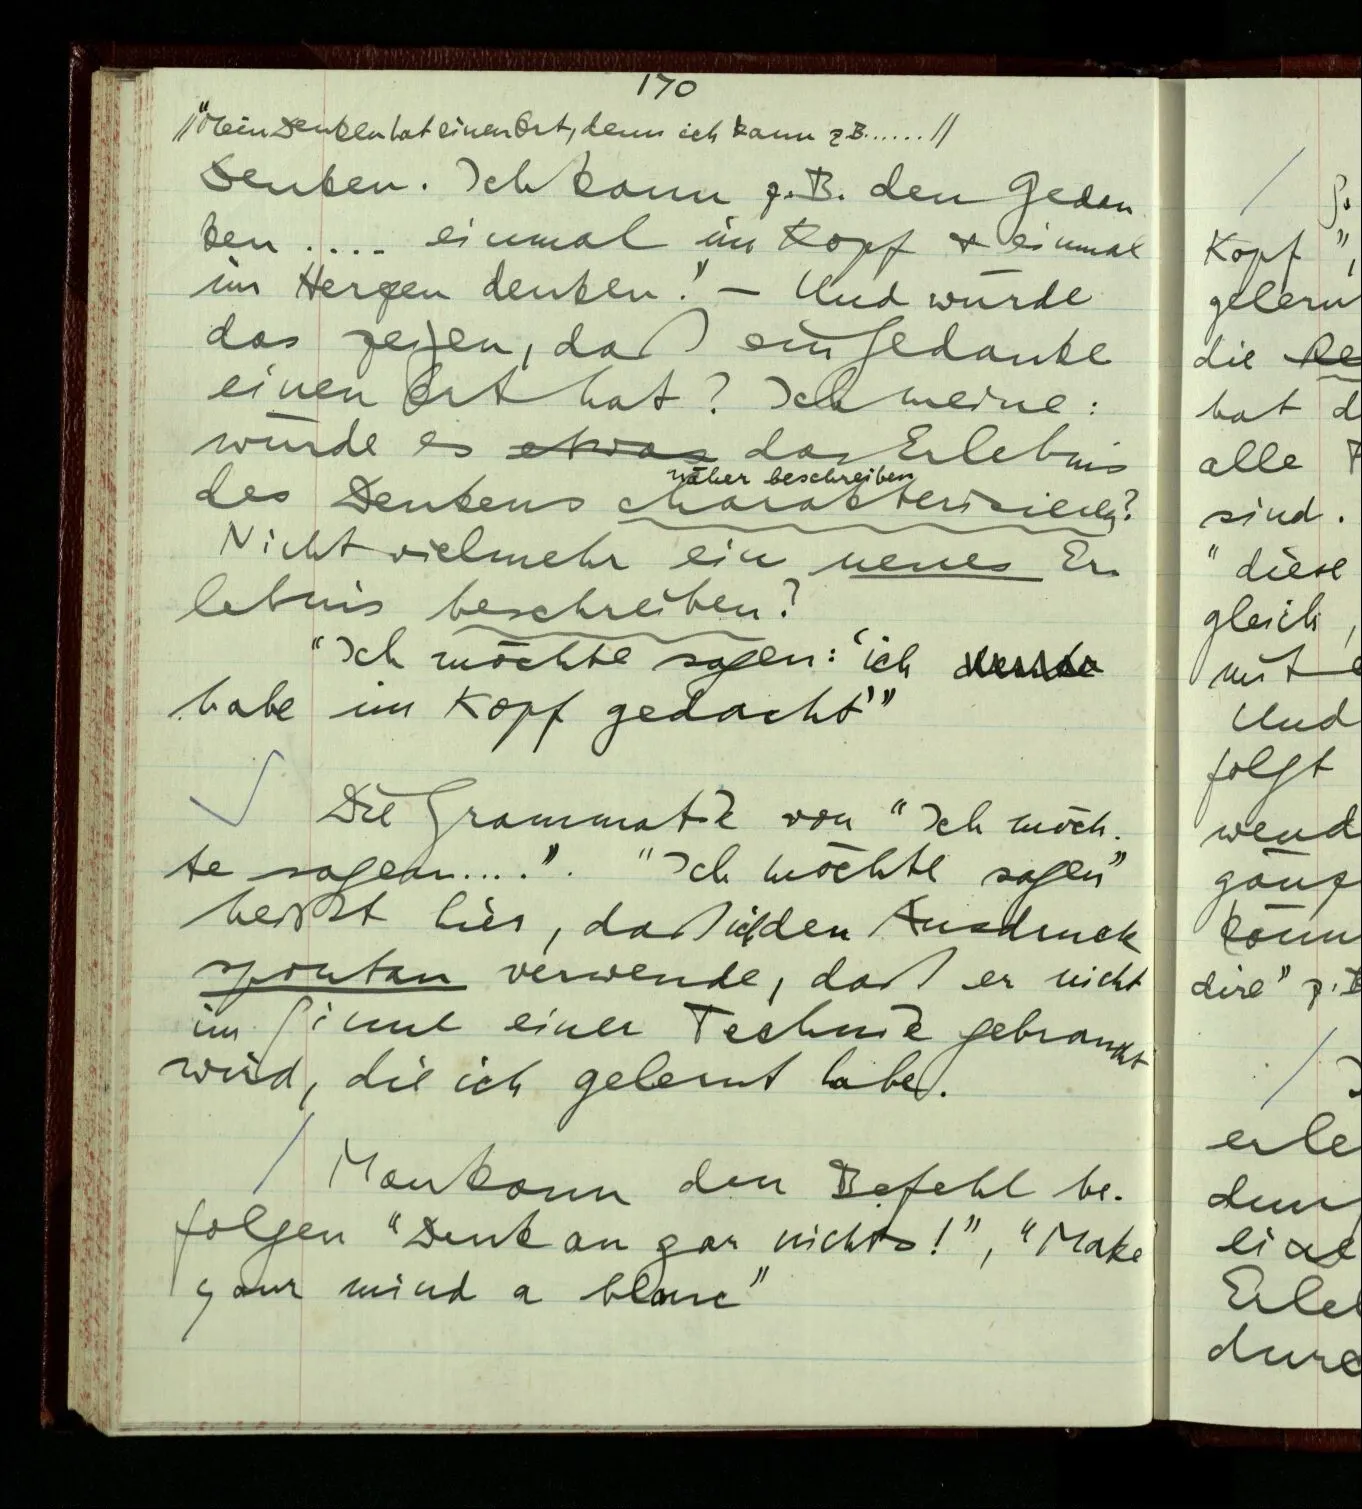 170
//"Mein Denken hat einen Ort, denn ich kann z.B......//
Denken. Ich kann z.B. den Gedan
ken .... einmal im Kopf & einmal
im Herzen denken." – Und würde
das zeigen, daß ein Gedanke
einen Ort hat? Ich meine:
würde es etwas das Erlebnis
näher beschreiben
des Denkens charakterisieren?
Nicht vielmehr ein neues Er-
lebnis beschreiben?
"Ich möchte sagen: 'ich denke
habe im Kopf gedacht'"
Die Grammatik von "Ich möch-
te sagen....". "Ich möchte sagen"
heißt hier, daß ich den Ausdruck
spontan verwende, daß er nicht
im Sinne einer Technik gebraucht
wird, die ich gelernt habe.
Man kann den Befehl be-
folgen "Denk an gar nichts!", "Make
your mind a blanc"
Kopf",
gelern
die
hat d
alle
sind.
"diese
gleich,
mit
Und
folgt
wend
gänz
könn
dire" z.B
erle
denn
Erle
durc